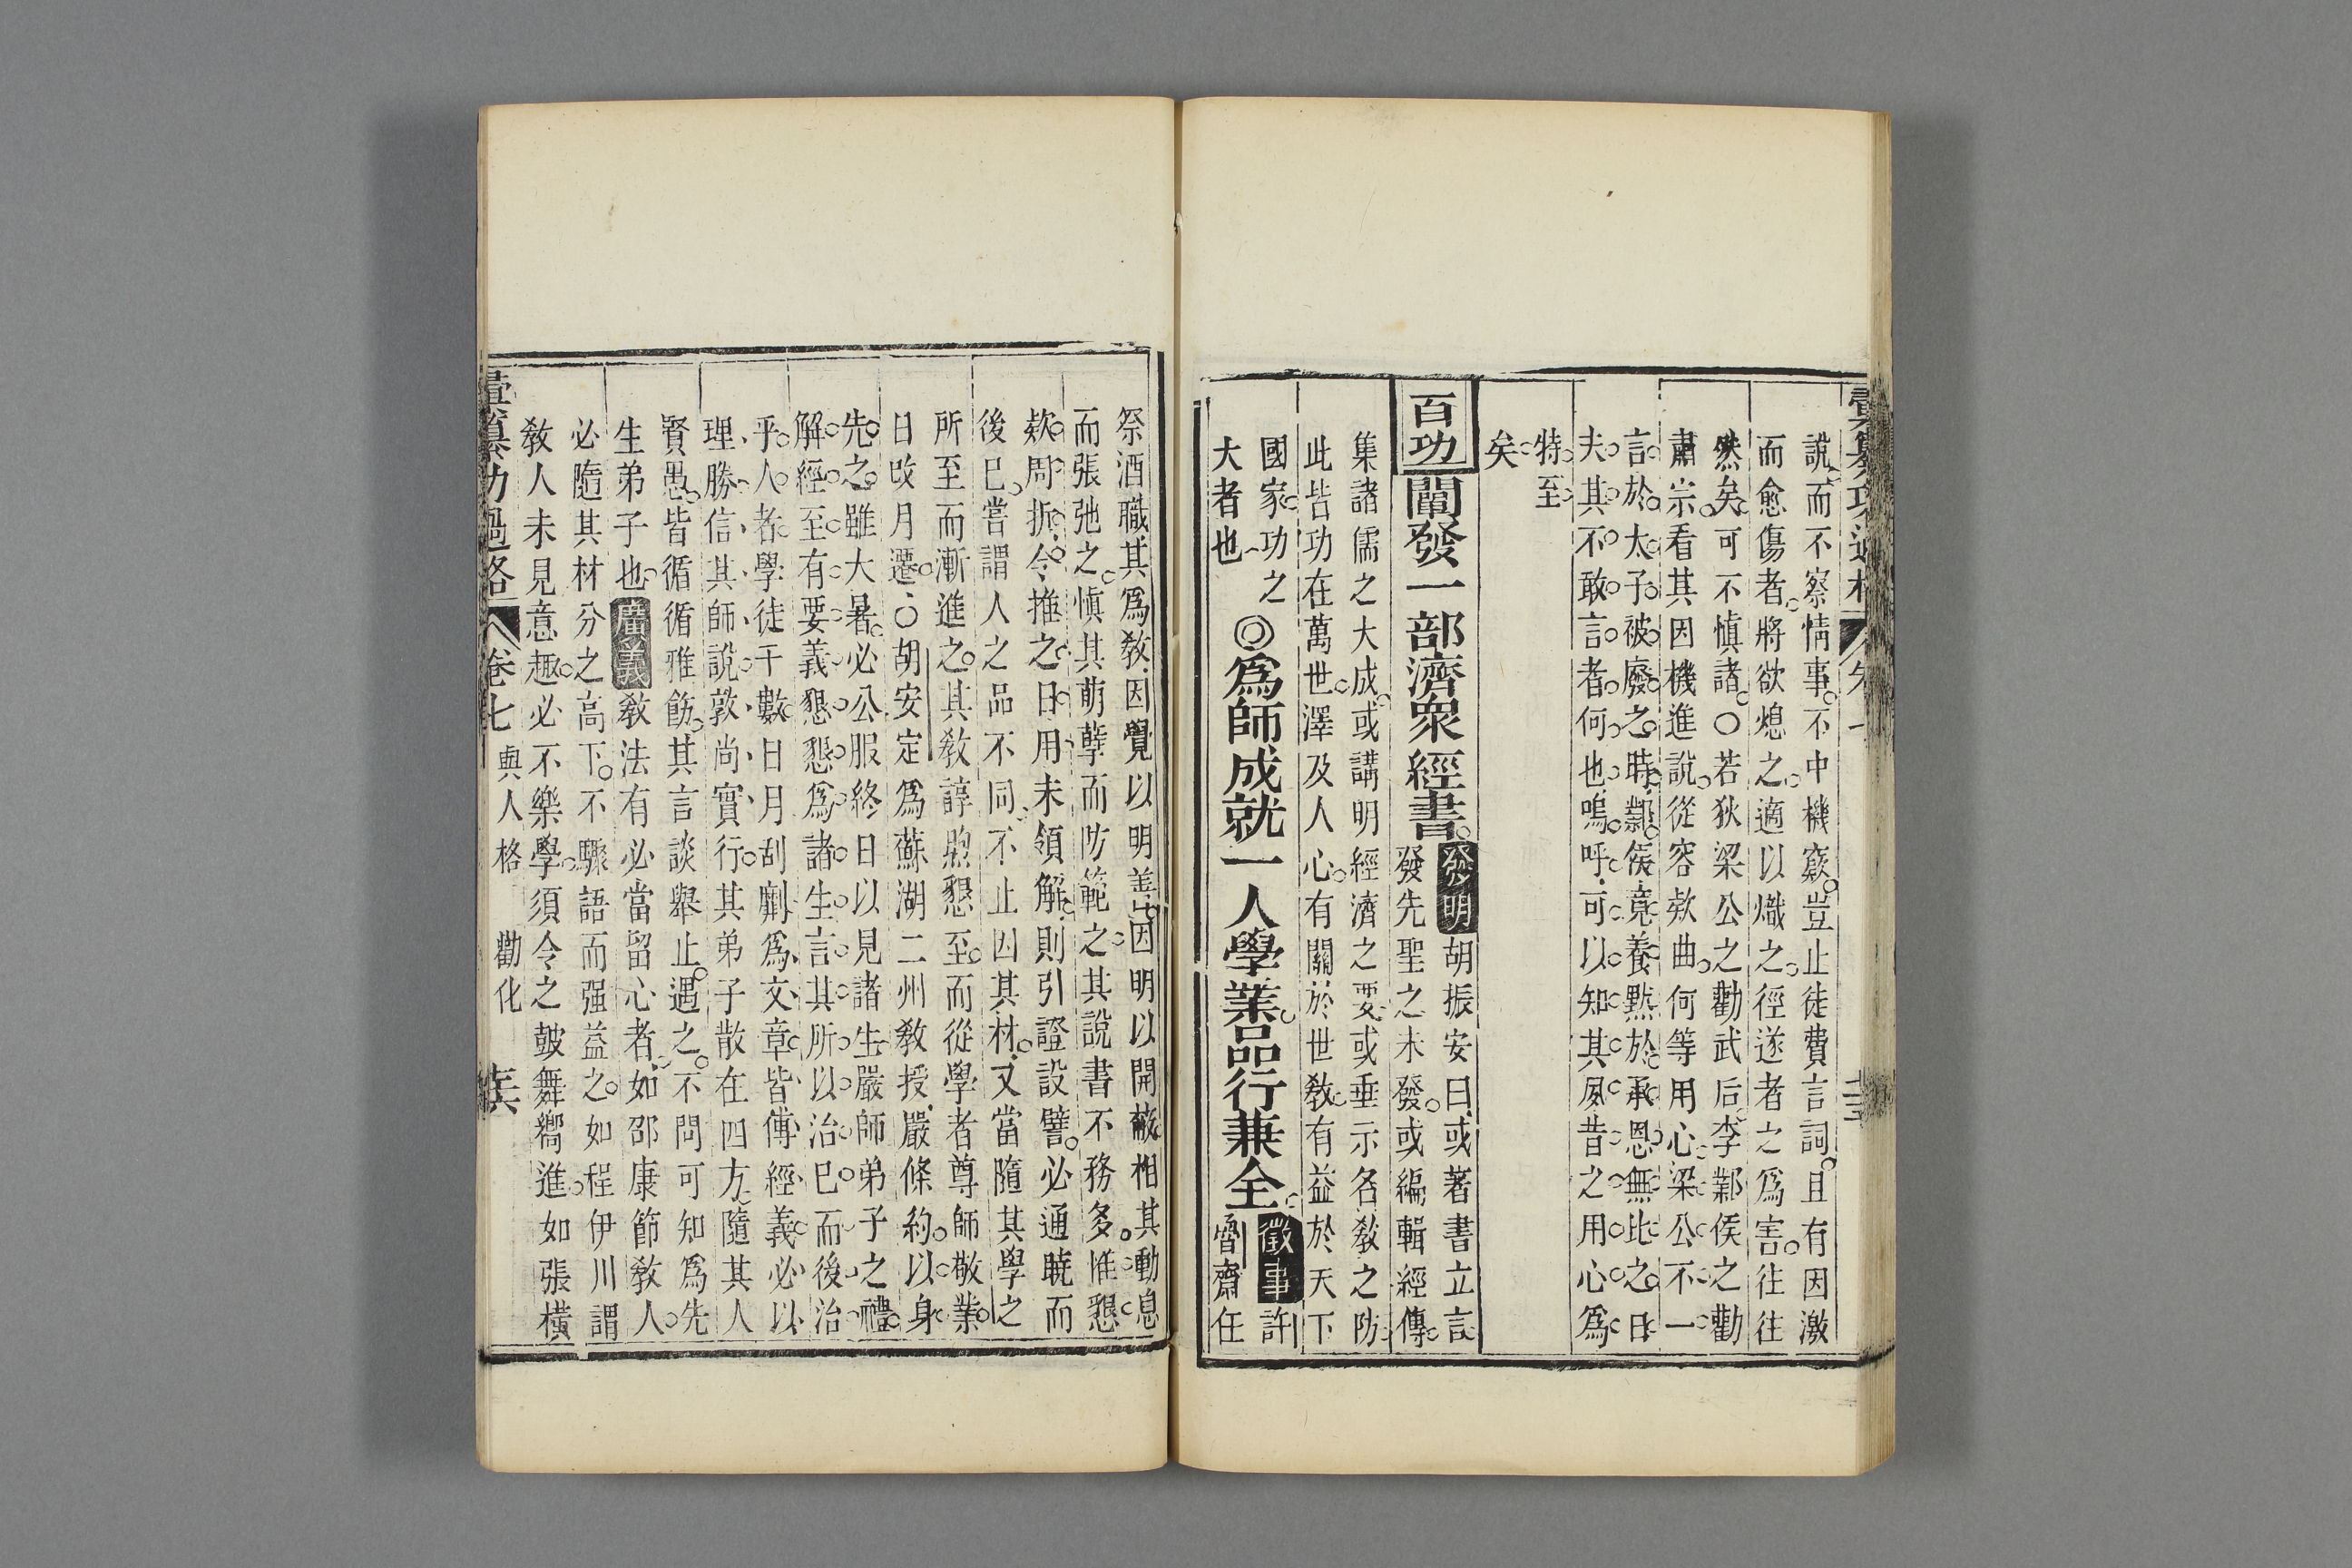 彙纂功過格
說而不察情事不中機竅豈止徒費言詞且有因激
而愈傷者將欲熄之適以熾之徑遂者之爲害往往
然矣可不愼諸○若狄梁公之勸武后李鄴侯之勸
肅宗看其因機進說從容欵曲何等用心梁公不一
言於太子被廢之時鄴侯竟養默於承恩無比之日
夫其不敢言者何也嗚呼可以知其風昔之用心爲
特至
矣
百功
闡發一部濟衆經書
發明
胡振安曰或著書立言
發先聖之未發或編輯經傳
集諸儒之大成或講明經濟之要或垂示名敎之防
此皆功在萬世澤及人心有關於世敎有益於天下
國家功之
大者也
◎爲師成就一人學業品行兼全
徵事
許
魯齋任
祭酒職其爲敎因覺以明善因明以開蔽相其動息
而張弛之愼其萌孽而防範之其說書不務多惟懇
欵周折令推之日用未領解則引證設譬必通曉而
後已嘗謂人之品不同不止因其材又當隨其學之
所至而漸進之其敎諄煦懇至而從學者尊師敬業
日改月遷○胡安定爲蘇湖二州敎授嚴條約以身
先之雖大暑必公服終日以見諸生嚴師弟子之禮
解經至有要義懇懇爲諸生言其所以治已而後治
乎人者學徒千數日月刮劘爲文章皆傳經義必以
理勝信其師說敦尚實行其弟子散在四方隨其人
賢愚皆循循雅飭其言談舉止遇之不問可知爲先
生弟子也
廣義
敎法有必當留心者如邵康節敎人
必隨其材分之高下不驟語而强益之如程伊川謂
敎人未見意趣必不樂學須令之皷舞嚮進如張橫
彙纂功過格 卷七 與人格 勸化